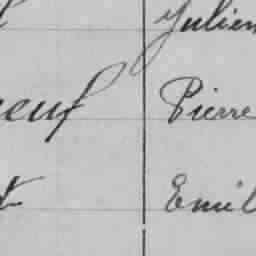 Julien
neuf Pierre
t Emil